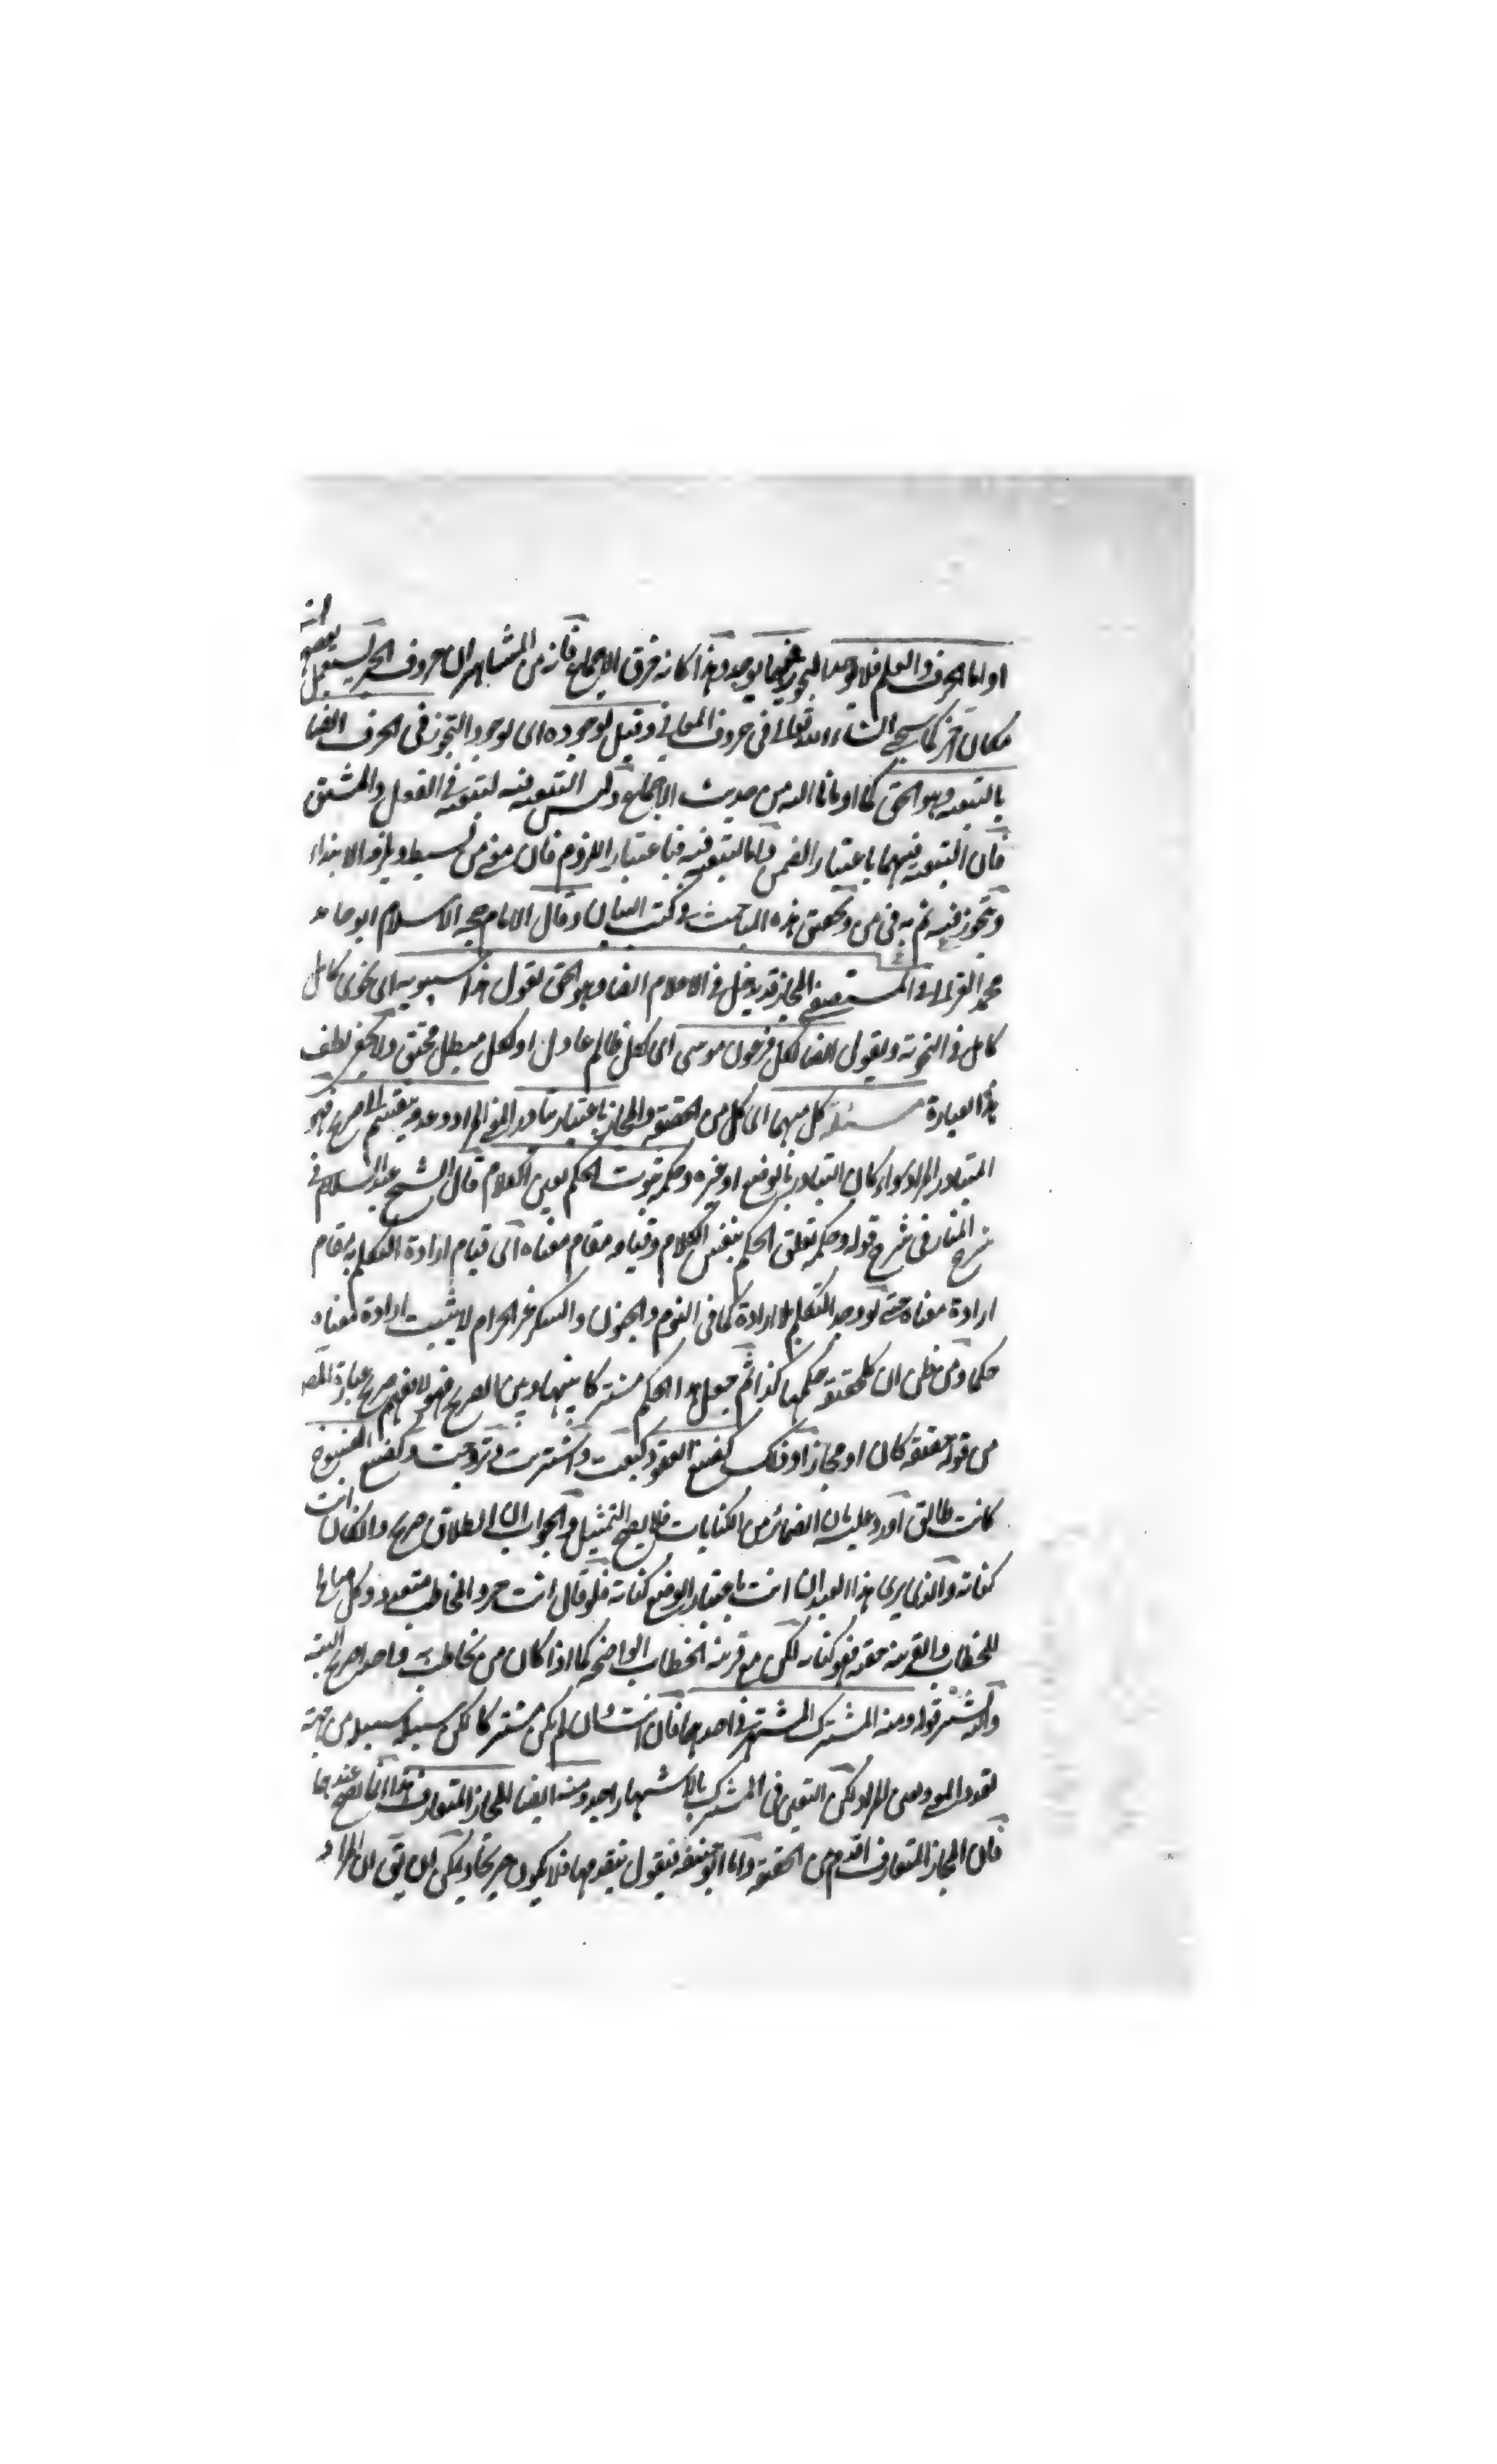 او اما الحرف والعلم فلا يوجد التجوز فيهما يوجد وهذا كانه خرق الاجماع فانه من المشاهير ان حروف الجر يستعمل بعضها
مكان آخر كما سيجئ ان شاء الله تعالى في حروف المعاني وقيل لوجوده اى لوجود التجوز في الحرف ايضا
بالتبعية وهو الحق كما اومأنا اليه من حديث الاجماع وليس التبعية فيه كتبعية في الفعل والمشتق
فان التبعية فيهما باعتبار الضمن واما التبعية فيه فباعتبار اللزوم فان معنى من بسيط ويلزمه الابتداء
وتجوز فيه ثم به في من وتحقيق هذه المباحث في كتب البيان وقال الامام حجة الاسلام ابو حامد
محمد الغزالي في المستصفى المجاز قد يدخل في الاعلام ايضا وهو الحق تقول هذا سيبويه اى نحوى كامل
كامل في النحو وتقول ايضا لكل فرعون موسى اى لكل ظالم عادل او لكل مبطل محق ولا يخفى لطف
هذا العبارة مسئلة كل منهما اى كل من الحقيقة والمجاز باعتبار تبادر المعنى المراد وعدمه ينقسم الى صريح فهو
المتبادر المراد سواء كان التبادر بالوضع او غيره وحكمه ثبوت الحكم بعين الكلام قال الشيخ عبد السلام في
شرح المنار في شرح قوله وحكمه تعلق الحكم بنفس الكلام وقيامه مقام معناه اى قيام ارادة التكلم به مقام
ارادة معناه حتى لو وجد التكلم بلا ارادة كما في النوم والجنون والسكر غير الحرام لا يثبت ارادة معناه
حكما ومن ظن ان كل حقيقة حكمها كذا ثم جعل هذا الحكم مشتركا بينها وبين الصريح فهو لا يفهم صريح عبارة المص
من قوله حقيقة كان او مجازا وذلك كصيغ العقود كبعت واشتريت وتزوجت وكصيغ الفسوخ
كانت طالق اورد عليه بان الضمائر من الكنايات فلا يصح التمثيل والجواب ان الطلاق صريح وان كان انت
كناية والذى يرى هذا العبد ان انت باعتبار الوضع كناية فلو قال انت حر والمخاطب متعدد وكل صالح
للخطاب والقرينة خفية فهو كناية لكن مع قرينة الخطاب الواضحة كما اذا كان من يخاطب به واحدا صريح البتة
واليه يشير قوله ومنه المشترك المشتهر في احدهما فان انت وان لم يكن مشتركا لكن سبيله سبيله من جهة
تعدد المعنى وتعين المراد لكن التعين في المشترك بالاشتهار احد ومنه ايضا المجاز المتعارف هذا انما يصح عندهما
فان المجاز المتعارف اقدم من الحقيقة واما ابو حنيفة فيقول بتقدمها فلا يكون صريحا ويمكن ان يق ان المراد